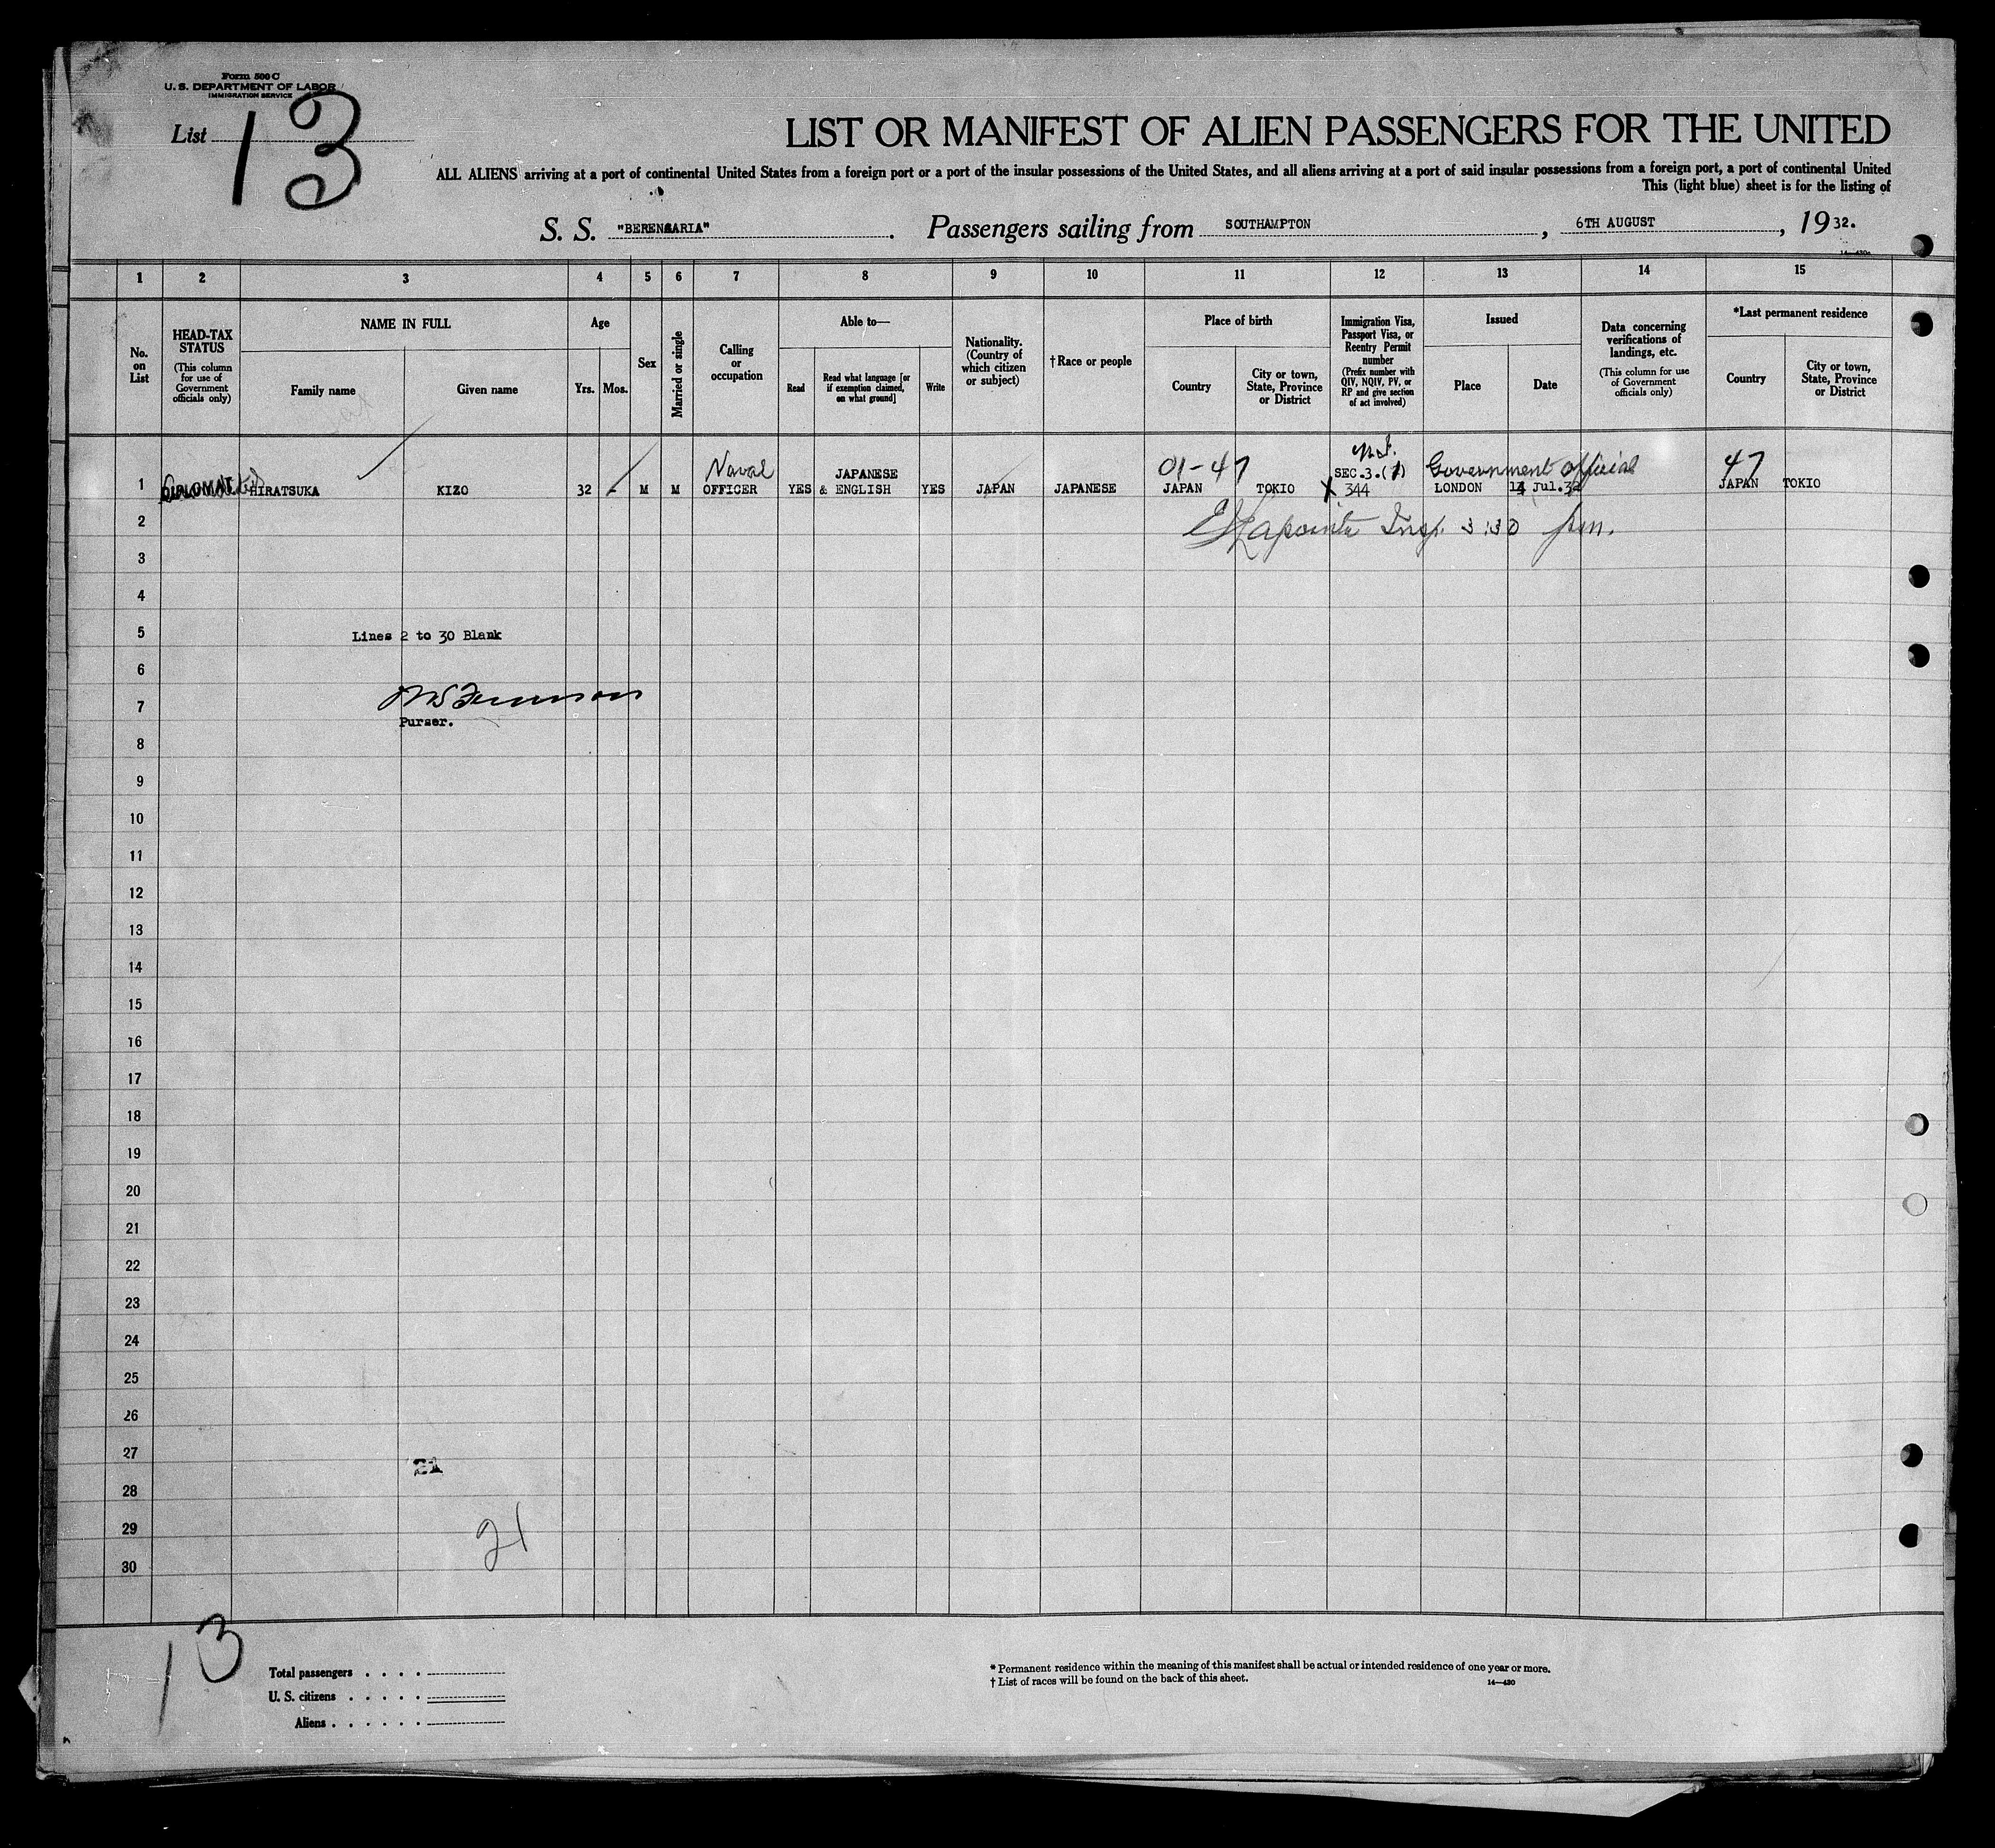 Form 500 C
U. S. DEPARTMENT OF LABOR
IMMIGRATION SERVICE
List 13
LIST OR MANIFEST OF ALIEN PASSENGERS FOR THE UNITED
ALL ALIENS arriving at a port of continental United States from a foreign port or a port of the insular possessions of the United States, and all aliens arriving at a port of said insular possessions from a foreign port, a port of continental United
This (light blue) sheet is for the listing of
S. S. "BERENGARIA". Passengers sailing from SOUTHAMPTON, 6TH AUGUST, 1932.
1 2 3 4 5 6 7 8 9 10 11 12 13 14 15
No. on List
HEAD-TAX STATUS
(This column for use of Government officials only)
NAME IN FULL
Family name
Given name
Age
Yrs. Mos.
Sex
Married or single
Calling or occupation
Able to—
Read
Read what language [or if exemption claimed, on what ground]
Write
Nationality. (Country of which citizen or subject)
†Race or people
Place of birth
Country
City or town, State, Province or District
Immigration Visa, Passport Visa, or Reentry Permit number
(Prefix number with QIV, NQIV, PV, or RP and give section of act involved)
Issued
Place
Date
Data concerning verifications of landings, etc.
(This column for use of Government officials only)
*Last permanent residence
Country
City or town, State, Province or District
Naval JAPANESE 01-47 SEC.3.(1) Government official 47
1 DIPLOMAT HIRATSUKA KIZO 32 - M M OFFICER YES & ENGLISH YES JAPAN JAPANESE JAPAN TOKIO 344 LONDON Jul. 32 JAPAN TOKIO
2 Lapointe Insp. 3:30 pm.
3
4
5 Lines 2 to 30 Blank
6
7
Purser.
8
9
10
11
12
13
14
15
16
17
18
19
20
21
22
23
24
25
26
27
21
28
29 21
30
13
Total passengers . . . .
U. S. citizens . . . . .
Aliens . . . . . .
* Permanent residence within the meaning of this manifest shall be actual or intended residence of one year or more.
† List of races will be found on the back of this sheet.
14—430